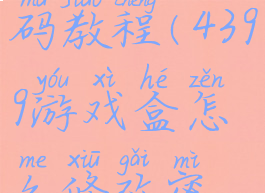 mǎ jiāo chéng
码教程(439
yóu xì hé zěn
9游戏盒怎
me xiū gǎi mì
么修改密